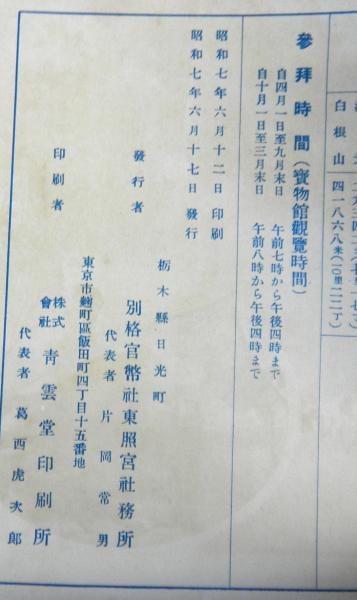 白根山 四一八六八米(一〇里二二丁)
參拜時間(寶物館觀覽時間)
自四月一日至九月末日 午前七時から午後四時まで
自十月一日至三月末日 午前八時から午後四時まで
昭和七年六月十二日印刷
昭和七年六月十七日發行
栃木縣日光町
發行者 別格官幣社東照宮社務所
代表者 片岡常男
東京市麴町區飯田町四丁目十五番地
印刷者 株式會社 靑雲堂印刷所
代表者 葛西虎次郎